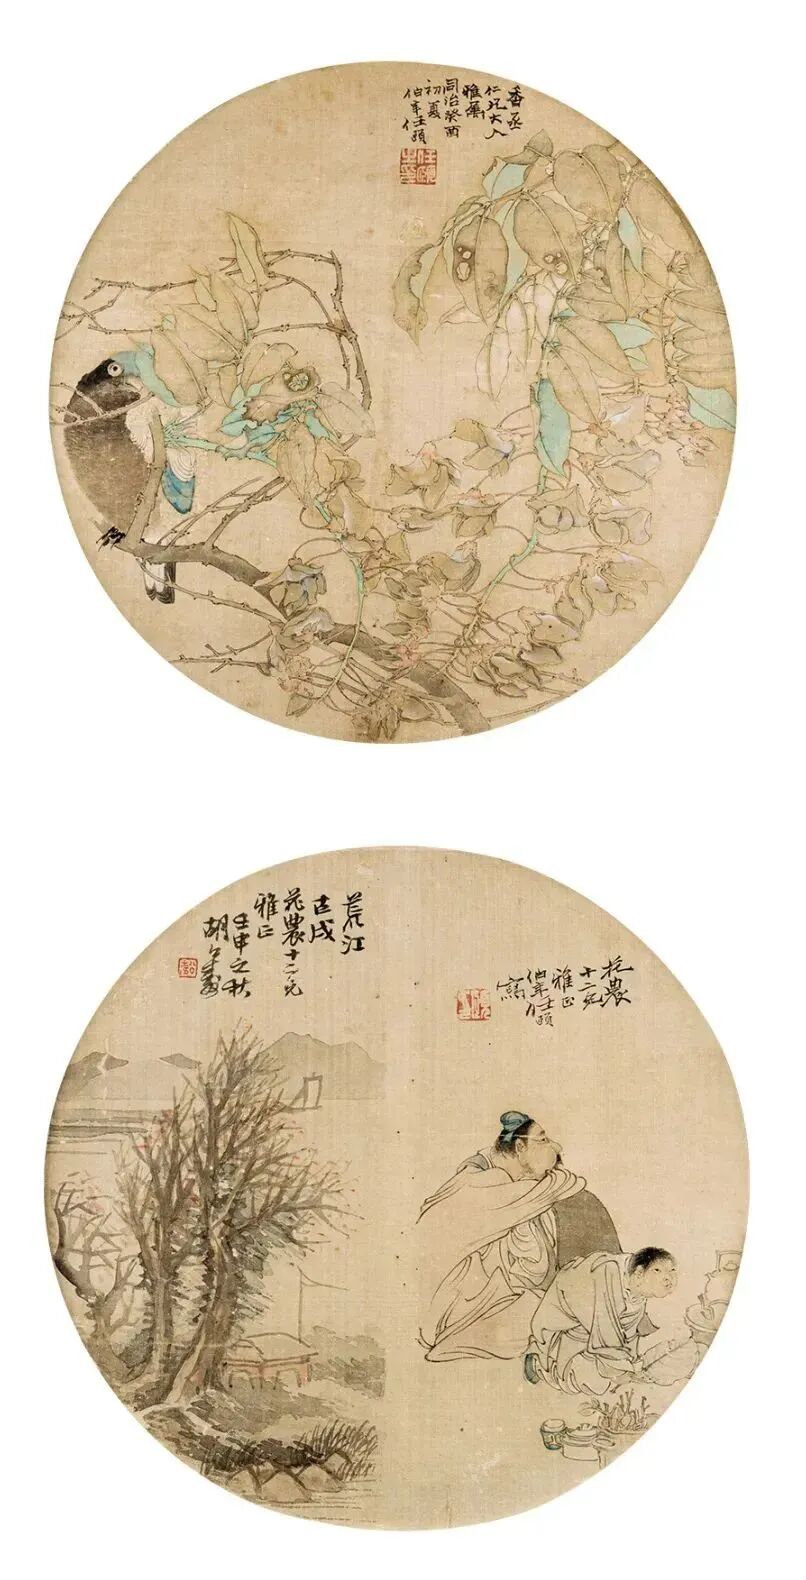 香丞
仁兄大人
雅屬
同治癸酉
初夏
伯年任頤
花農
十二兄
雅正
伯年任頤
寫
荒江
古戍
花農十二兄
雅正
壬申之秋
胡公壽